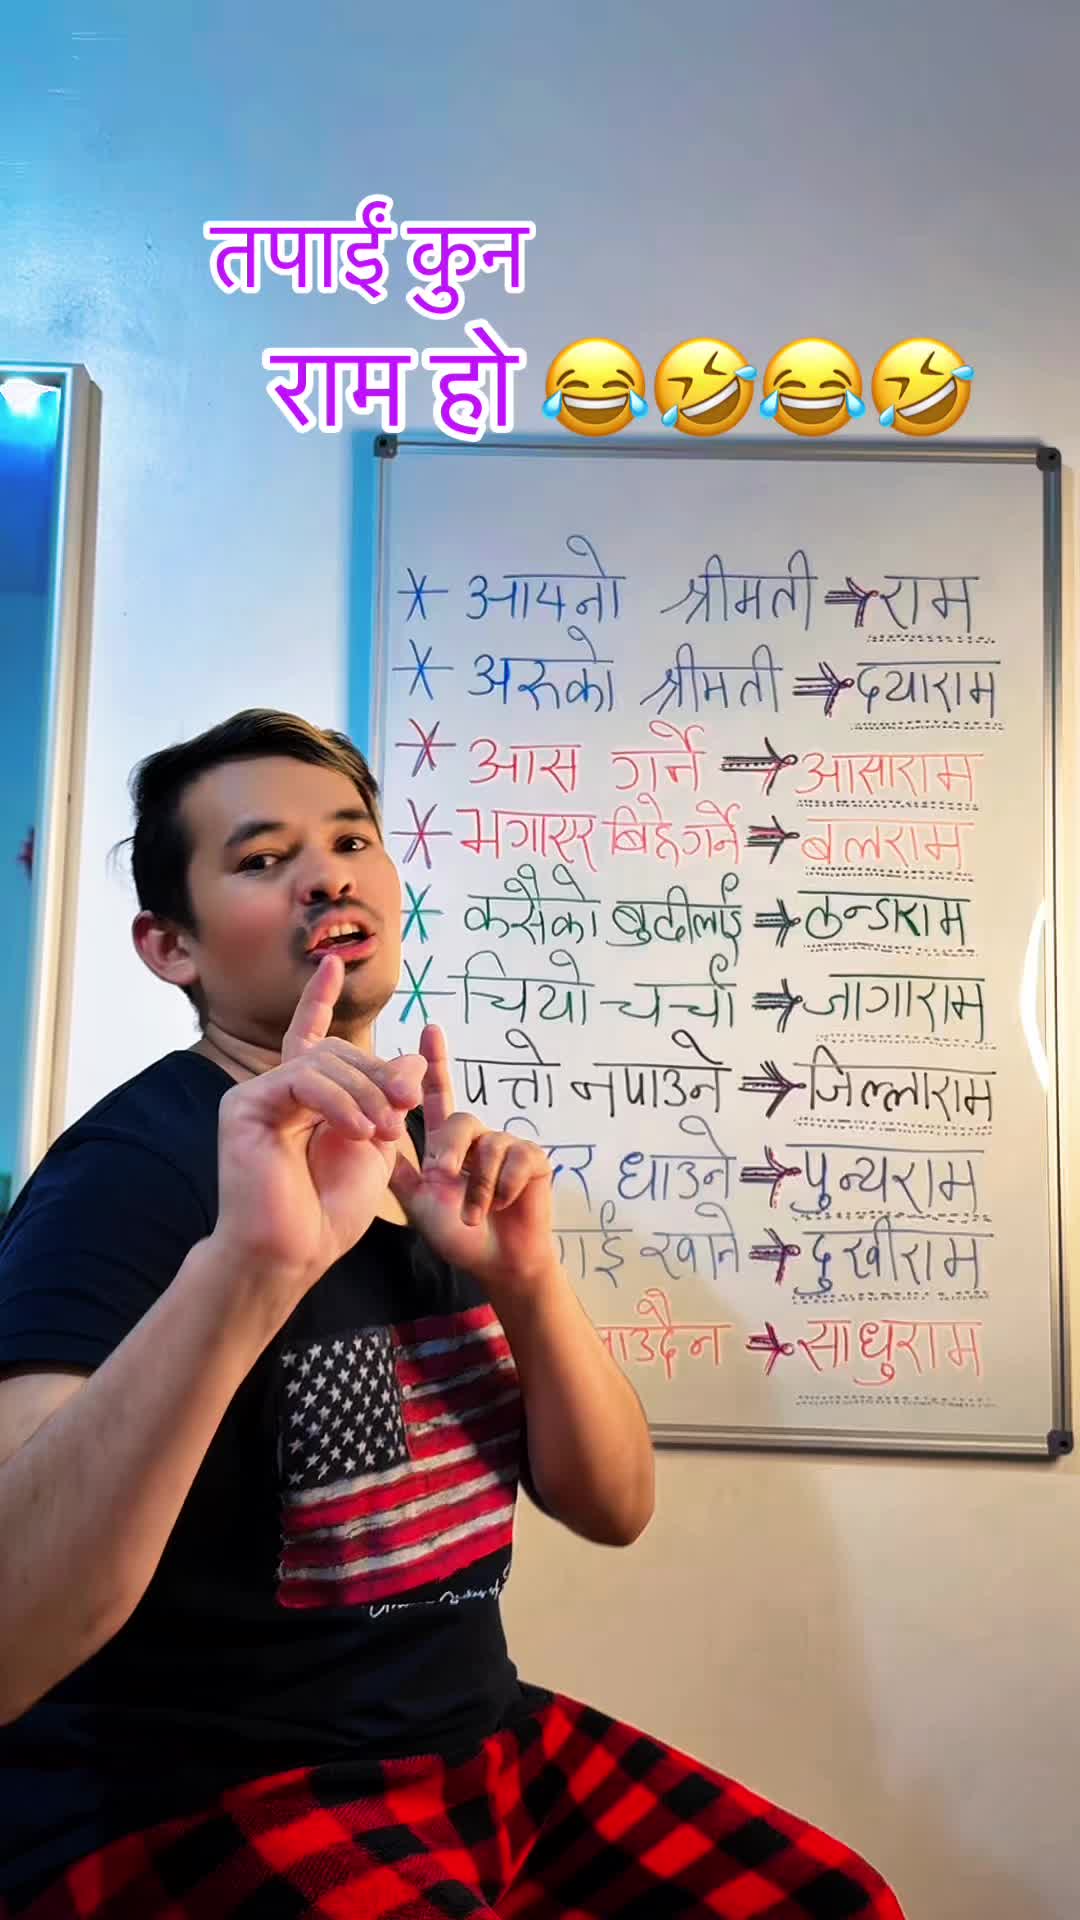 तपाईं कुन
राम हो 😂🤣😂🤣
* आफ्नो श्रीमती ⇒ राम
* अरुको श्रीमती ⇒ दयाराम
* आस गर्ने ⇒ आसाराम
* भगाएर बिहे गर्ने ⇒ बलराम
* कसैको बुढीलाई ⇒ ठन्डाराम
* चियो चर्चा ⇒ जागाराम
पत्तो नपाउने ⇒ जिल्लाराम
धाउने ⇒ पुन्यराम
खाने ⇒ दुखीराम
⇒ साधुराम